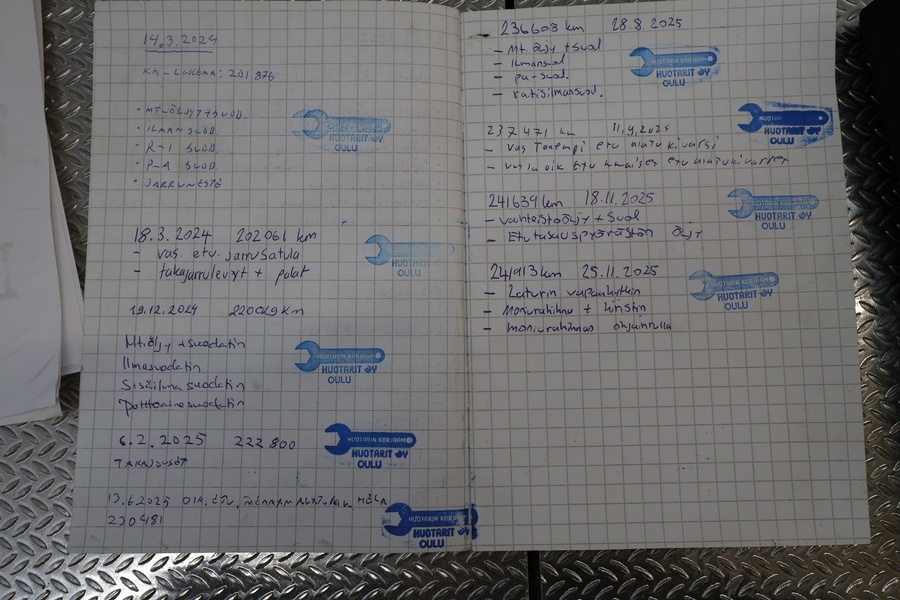 14.3.2024
KM-LUKEMA: 201 876
HUOTARIN KORJAAMO
HUOTARIT OY
OULU
• MT-ÖLJYT+SUOD.
• ILMANSUOD.
• R-I SUOD.
• P-A SUOD.
• JARRUNESTE
18.3.2024 202061 km
- vas. etu. jarrusatula
- takajarrulevyt + palat
HUOTARIN KORJAAMO
HUOTARIT OY
OULU
19.12.2024 220029 KM
Mt.öljy + suodatin
Ilmasuodatin
Sisäilmasuodatin
Polttoainesuodatin
HUOTARIN KORJAAMO
HUOTARIT OY
OULU
6.2.2025 222 800
HUOTARIN KORJAAMO
HUOTARIT OY
OULU
13.6.2025 OIK. ETU,
230481
HUOTARIN KORJAAMO
HUOTARIT OY
OULU
236608 km 28.8.2025
- Mt öljy + suod
- Ilmansuod
- pa-suod.
- raitisilmansuod.
HUOTARIN KORJAAMO
HUOTARIT OY
OULU
237 471 km 11.9.2025
- vas etu
- oik etu
HUOTARIN
HUOTARIT OY
OULU
241639 km 18.11.2025
- vaihteistoöljy + suod
- Etutasauspyörästön öljyt
HUOTARIN KORJAAMO
HUOTARIT OY
OULU
241913 km 25.11.2025
- Laturin vapaakytkin
- Moniurahihna + kiristin
- moniurahihnan ohjainrulla
HUOTARIN KORJAAMO
HUOTARIT OY
OULU